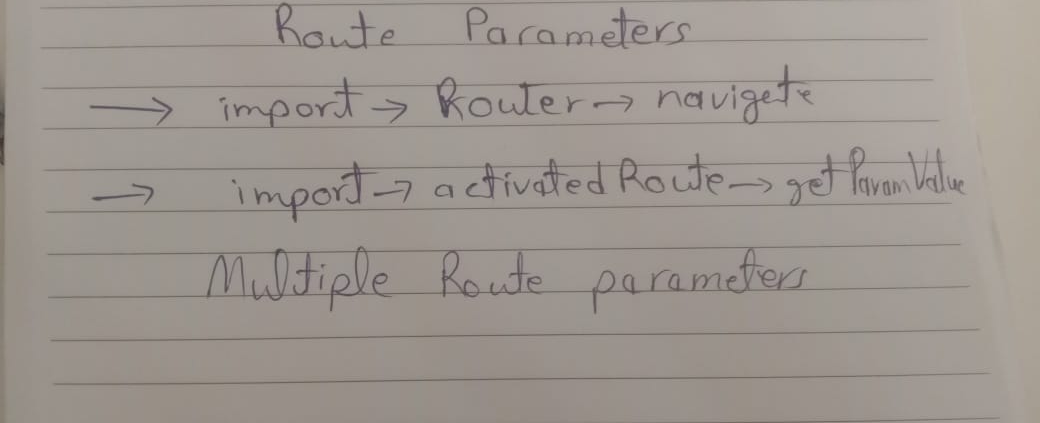 Route Parameters
→ import → Router → navigete
→ import → activated Route → get Param Value
Multiple Route parameters